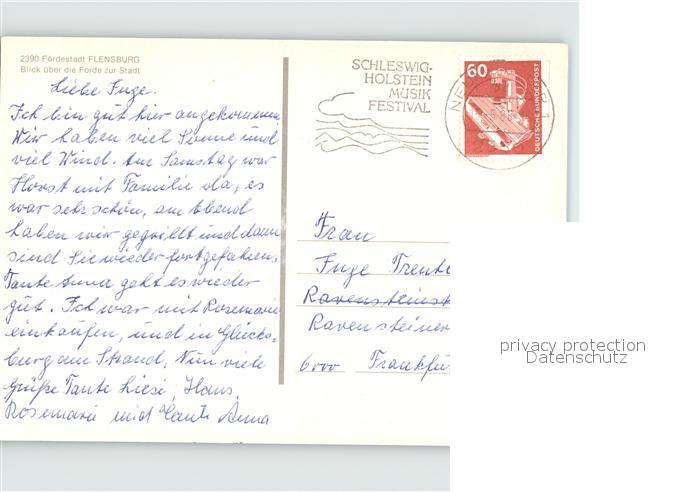 2390 Fördestadt FLENSBURG
Blick über die Förde zur Stadt
Liebe Inge.
Ich bin gut hier angekommen
Wir haben viel Sonne und
viel Wind. Am Samstag war
Horst mit Familie da, es
war sehr schön, am Abend
haben wir gegrillt und dann
sind Sie wieder fortgefahren.
Tante Anna geht es wieder
gut. Ich war mit Rosemarie
einkaufen, und in Glücks-
burg am Strand, Nun viele
Grüße Tante Liesi, Hans,
Rosemarie und Tante Anna
SCHLESWIG-
HOLSTEIN
MUSIK
FESTIVAL
60
DEUTSCHE BUNDESPOST
Frau
Inge
Ravensteinst
Ravensteiner
6000 Frankfu
privacy protection
Datenschutz